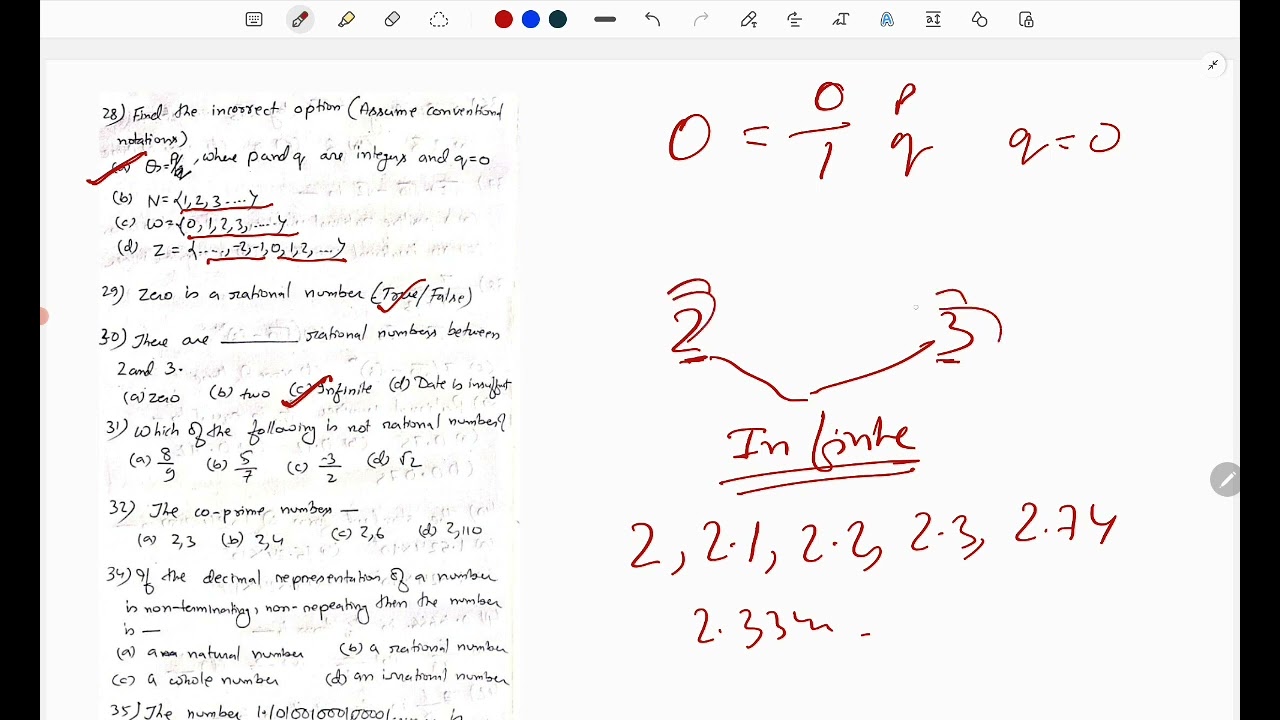 28) Find the incorrect option (Assume conventional
notations)
(a) Q=p/q, where p and q are integers and q=0
(b) N={1,2,3....}
(c) W={0,1,2,3,.....}
(d) Z={....,-2,-1,0,1,2,...}
29) Zero is a rational number (True/False)
30) There are ________ rational numbers between
2 and 3.
(a) zero (b) two (c) Infinite (d) Date is insuffict
31) Which of the following is not rational number?
(a) 8/9 (b) 5/7 (c) -3/2 (d) √2
32) The co-prime numbers —
(a) 2,3 (b) 2,4 (c) 2,6 (d) 2,110
34) If the decimal representation of a number
is non-terminating, non-repeating then the number
is —
(a) a natural number (b) a rational number
(c) a whole number (d) an irrational number
35) The number 1.101001000100001...... is
0 = 0/1 p/q q=0
2 3
Infinite
2, 2.1, 2.2, 2.3, 2.74